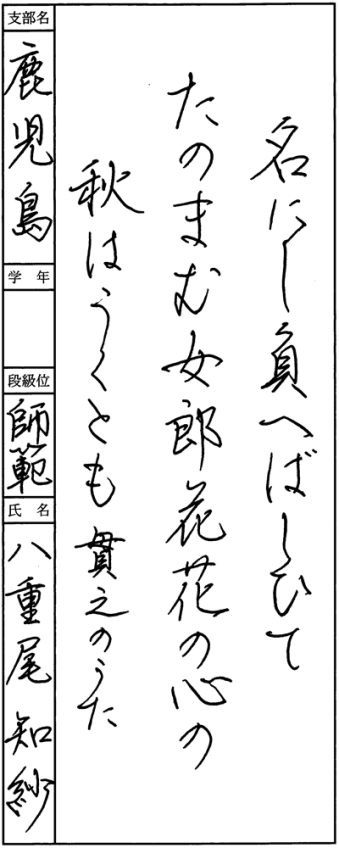 名にし負へばしひて
たのまむ女郎花花の心の
秋はうくとも 貫之のうた
支部名
鹿児島
学年
段級位
師範
氏名
八重尾知紗